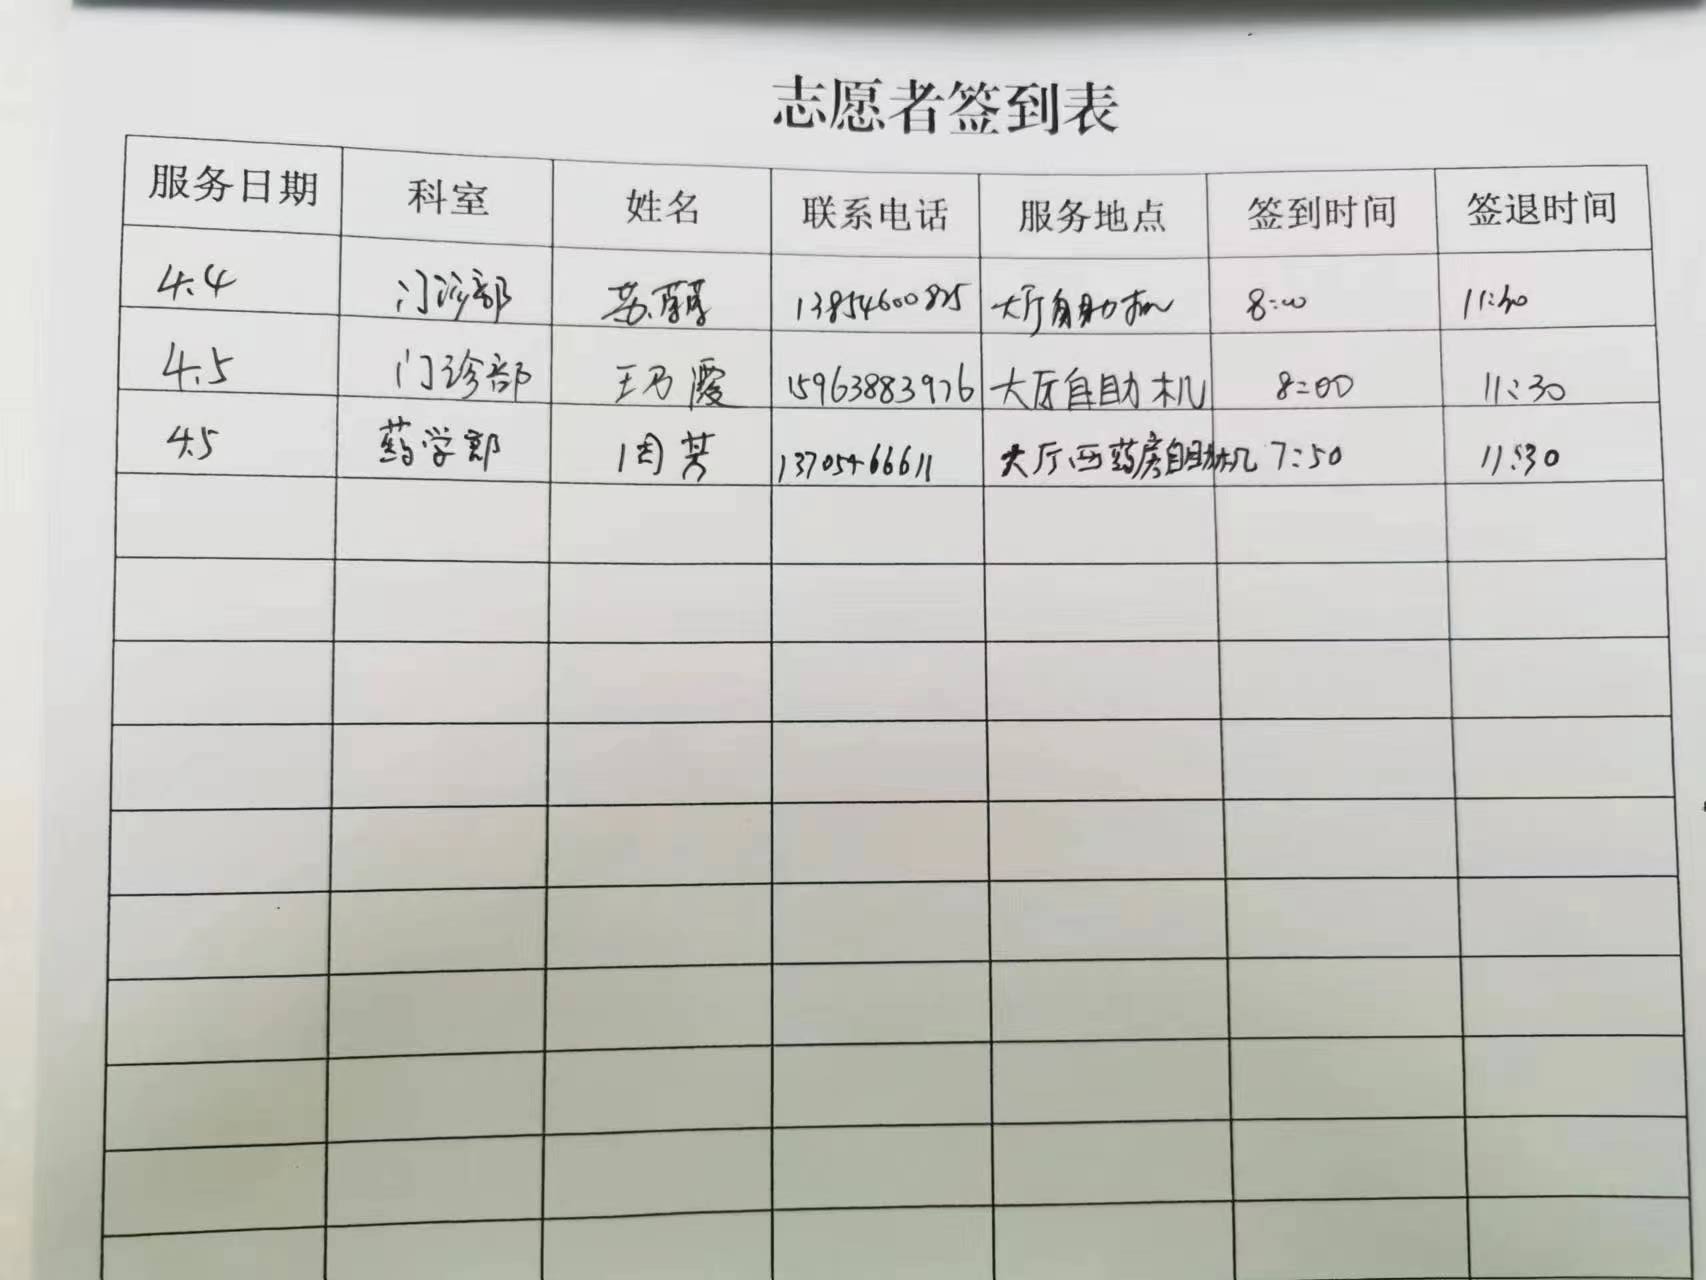 志愿者签到表
服务日期 科室 姓名 联系电话 服务地点 签到时间 签退时间
4.4 门诊部 苏 13854600825 大厅自助机 8:00 11:30
4.5 门诊部 王乃霞 15963883976 大厅自助机 8:00 11:30
4.5 药学部 芳 13705466611 大厅西药房自助机 7:50 11:30